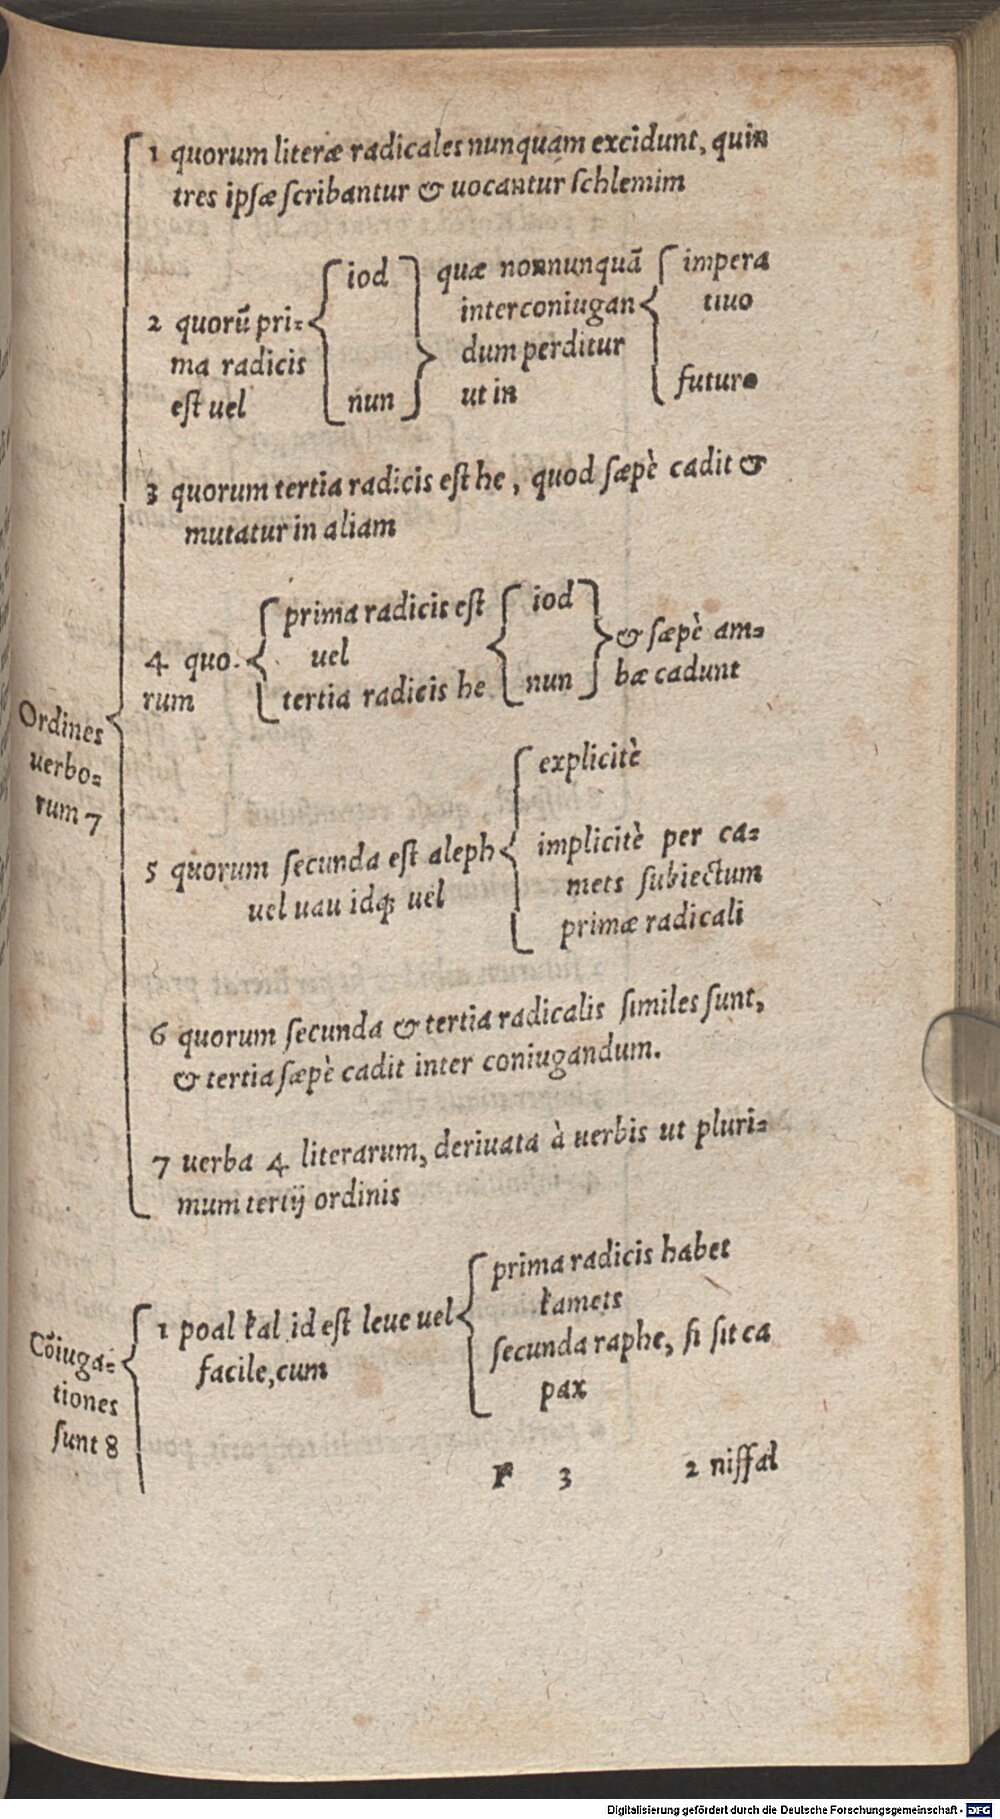 1 quorum literæ radicales nunquam excidunt, quin
tres ipsæ scribantur & uocantur schlemim
2 quorū pri-
ma radicis
est uel
iod
nun
quæ nonnunquā
inter coniugan
dum perditur
ut in
impera
tiuo
futuro
3 quorum tertia radicis est he, quod sæpè cadit &
mutatur in aliam
4 quo-
rum
prima radicis est
uel
tertia radicis he
iod
nun
& sæpè am-
bæ cadunt
Ordines
uerbo-
rum 7
5 quorum secunda est aleph
uel uau idq; uel
explicitè
implicitè per ca-
mets subiectum
primæ radicali
6 quorum secunda & tertia radicalis similes sunt,
& tertia sæpè cadit inter coniugandum.
7 uerba 4 literarum, deriuata à uerbis ut pluri-
mum tertij ordinis
Cōiuga-
tiones
sunt 8
1 poal kal id est leue uel
facile, cum
prima radicis habet
kamets
secunda raphe, si sit ca
pax
F 3 2 niffal
Digitalisierung gefördert durch die Deutsche Forschungsgemeinschaft - DFG